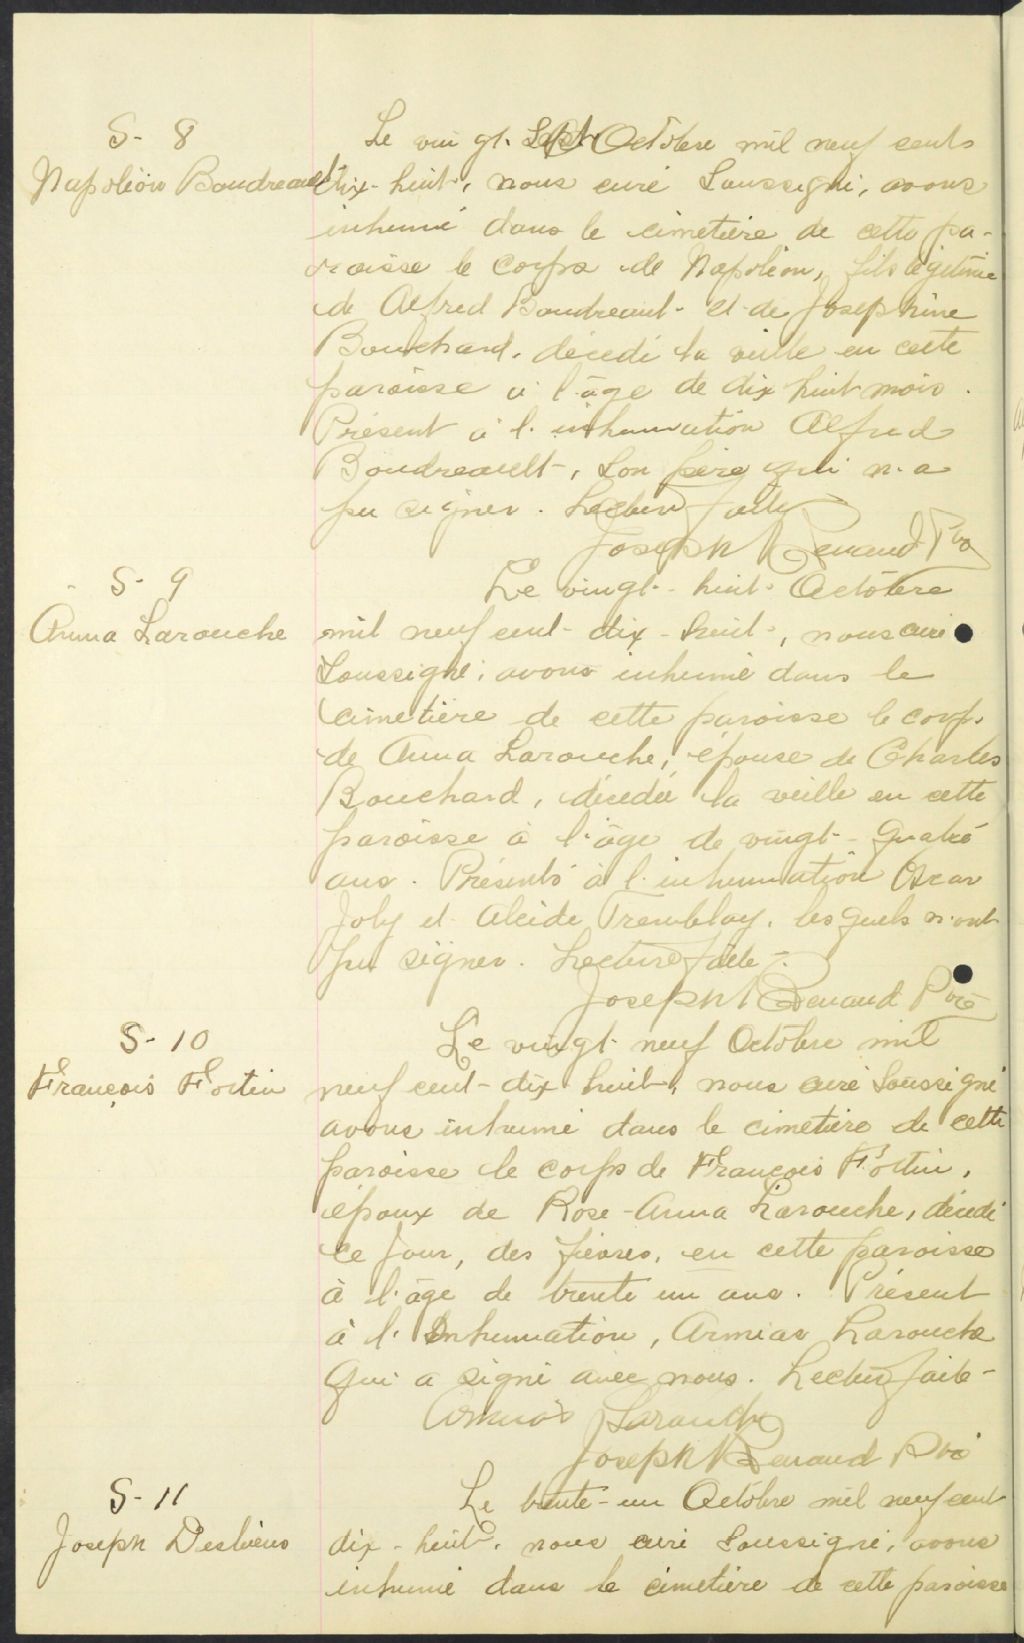 S- 8
Napoléon Boudreault
Le vingt. Sept Octobre mil neuf cents
dix-huit, nous curé Soussigné, avons
inhumé dans le cimetière de cette pa-
roisse le corps de Napoléon, fils légitime
de Alfred Boudreault et de Joséphine
Bouchard, décédé la veille en cette
paroisse à l'âge de dix huit mois.
Présent à l'inhumation Alfred
Boudreault, Son père qui n'a
pu signer. Lecture faite
Joseph Renaud Ptre
S- 9
Anna Larouche
Le vingt-huit Octobre
mil neuf cent-dix-huit, nous curé
Soussigné, avons inhumé dans le
cimetière de cette paroisse le corps
de Anna Larouche, épouse de Charles
Bouchard, décédée la veille en cette
paroisse à l'âge de vingt-quatre
ans. Présents à l'inhumation Oscar
Joly et Alcide Tremblay, lesquels n'ont
pu signer. Lecture faite.
Joseph Renaud Ptre
S- 10
François Fortin
Le vingt neuf Octobre mil
neuf cent-dix huit, nous curé Soussigné
avons inhumé dans le cimetière de cette
paroisse le corps de François Fortin,
époux de Rose-Anna Larouche, décédé
ce jour, des fièvres, en cette paroisse
à l'âge de trente un ans. Présent
à l'Inhumation, Armias Larouche
qui a signé avec nous. Lecture faite-
Armias Larouche
Joseph Renaud Ptre
S- 11
Joseph Desbiens
Le trente-un Octobre mil neuf cent
dix-huit, nous curé Soussigné, avons
inhumé dans le cimetière de cette paroisse